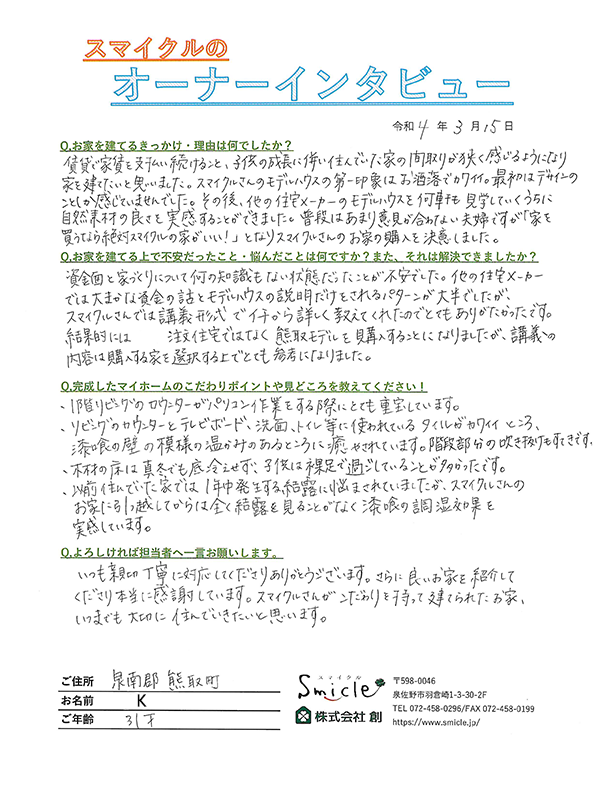 スマイクルの
オーナーインタビュー
令和 4 年 3 月 15 日
Q.お家を建てるきっかけ・理由は何でしたか？
賃貸で家賃を支払い続けること、子供の成長に伴い住んでいた家の間取りが狭く感じるようになり
家を建てたいと思いました。スマイクルさんのモデルハウスの第一印象はお洒落でカワイイ。最初はデザインの
ことしか感じていませんでした。その後、他の住宅メーカーのモデルハウスを何軒も見学していくうちに
自然素材の良さを実感することができました。普段はあまり意見が合わない夫婦ですが「家を
買うなら絶対スマイクルの家がいい！」となりスマイクルさんのお家の購入を決意しました。
Q.お家を建てる上で不安だったこと・悩んだことは何ですか？また、それは解決できましたか？
資金面と家づくりについて何の知識もない状態だったことが不安でした。他の住宅メーカー
では大まかな資金の話とモデルハウスの説明だけをされるパターンが大半でしたが、
スマイクルさんでは講義形式で1から詳しく教えてくれたのでとてもありがたかったです。
結果的には 注文住宅ではなく熊取モデルを購入することになりましたが、講義の
内容は購入する家を選択する上でとても参考になりました。
Q.完成したマイホームのこだわりポイントや見どころを教えてください！
・1階リビングのカウンターがパソコン作業をする際にとても重宝しています。
・リビングのカウンターとテレビボード、洗面、トイレ等に使われているタイルがカワイイところ、
漆喰の壁の模様の温かみのあるところに癒やされています。階段部分の吹き抜けもすてきです。
・木材の床は真冬でも底冷えせず、子供は裸足で過ごしていることが多かったです。
・以前住んでいた家では1年中発生する結露に悩まされていましたが、スマイクルさんの
お家に引っ越してからは全く結露を見ることがなく漆喰の調湿効果を
実感しています。
Q.よろしければ担当者へ一言お願いします。
いつも親切丁寧に対応してくださりありがとうございます。さらに良いお家を紹介して
くださり本当に感謝しています。スマイクルさんがこだわりを持って建てられたお家、
いつまでも大切に住んでいきたいと思います。
ご住所 泉南郡熊取町
お名前 K
ご年齢 31才
スマイクル
Smicle
株式会社 創
〒598-0046
泉佐野市羽倉崎1-3-30-2F
TEL 072-458-0296/FAX 072-458-0199
https://www.smicle.jp/